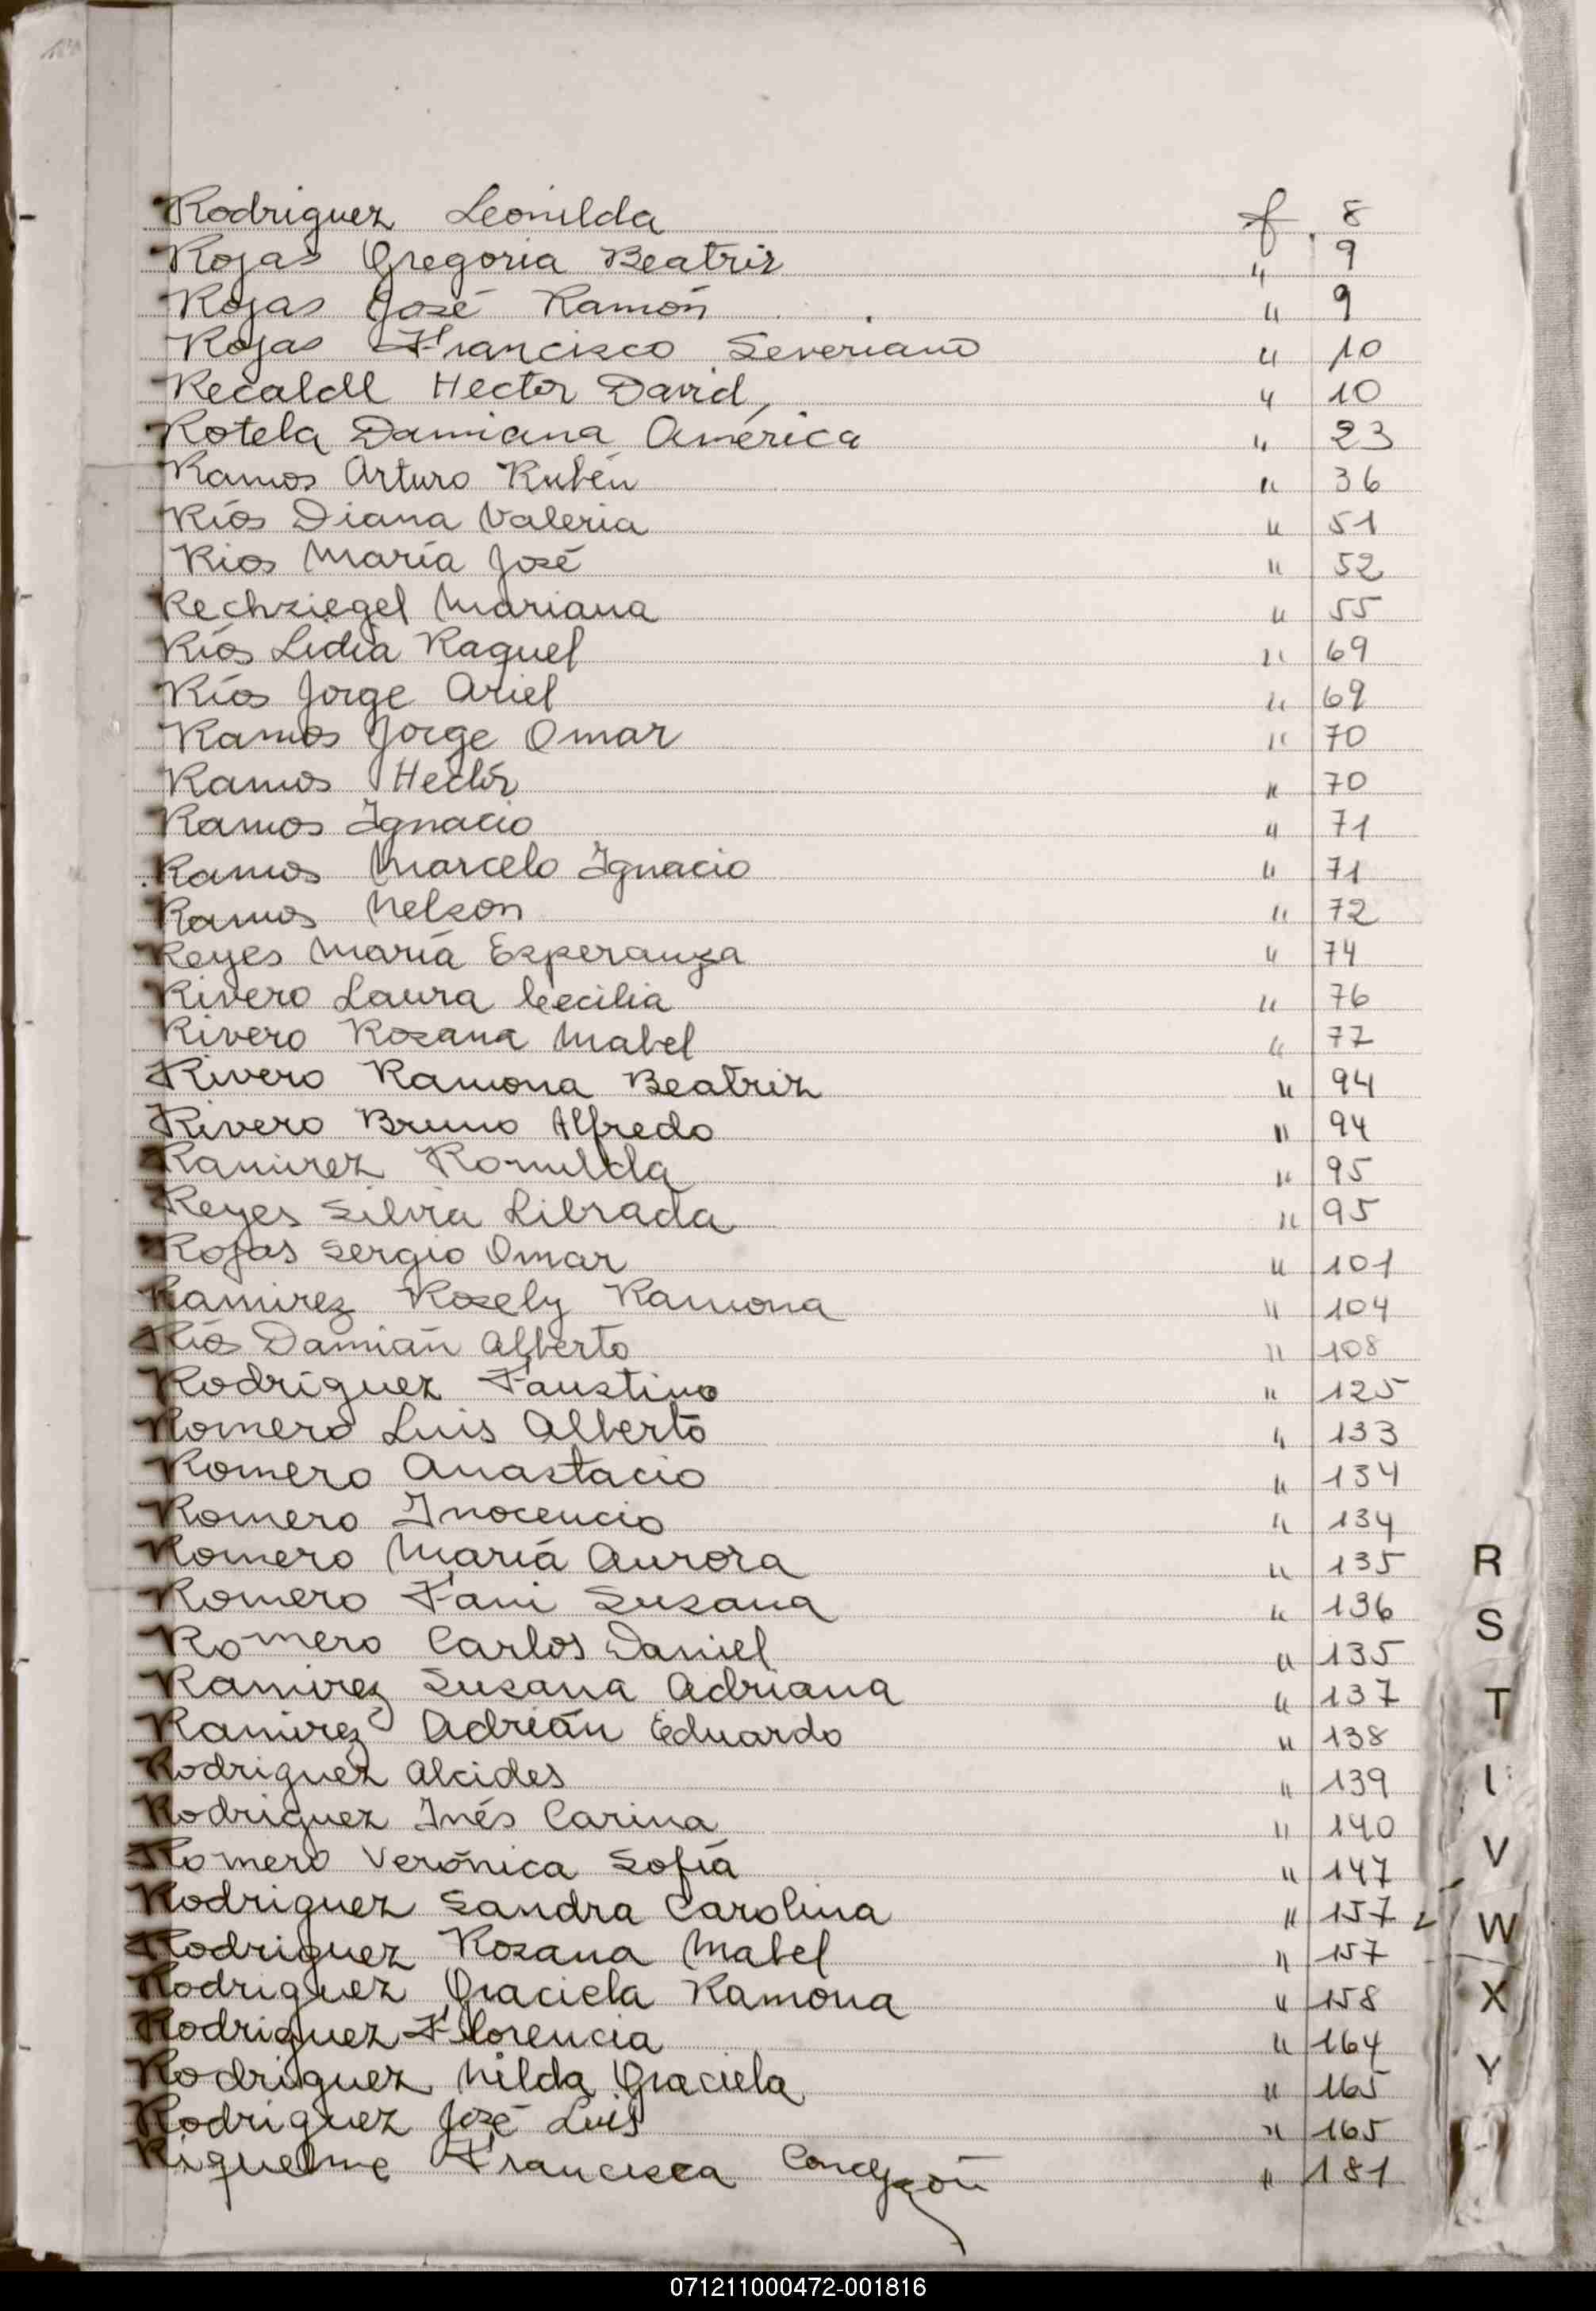 Rodriguez Leonilda f. 8
Rojas Gregoria Beatriz " 9
Rojas José Ramón " 9
Rojas Francisco Severiano " 10
Recalde Hector David " 10
Rotela Damiana América " 23
Ramos Arturo Rubén " 36
Ríos Diana Valeria " 51
Rios María José " 52
Rechziegel Mariana " 55
Ríos Lidia Raquel " 69
Ríos Jorge Ariel " 69
Ramos Jorge Omar " 70
Ramos Hector " 70
Ramos Ignacio " 71
Ramos Marcelo Ignacio " 71
Ramos Nelson " 72
Reyes María Esperanza " 74
Rivero Laura Cecilia " 76
Rivero Rosana Mabel " 77
Rivero Ramona Beatriz " 94
Rivero Bruno Alfredo " 94
Ramirez Romilda " 95
Reyes Silvia Librada " 95
Rojas Sergio Omar " 101
Ramirez Rosely Ramona " 104
Ríos Damián Alberto " 108
Rodríguez Faustino " 125
Romero Luis Alberto " 133
Romero Anastacio " 134
Romero Inocencio " 134
Romero María Aurora " 135
Romero Fani Susana " 136
Romero Carlos Daniel " 135
Ramirez Susana Adriana " 137
Ramirez Adrián Eduardo " 138
Rodriguez Alcides " 139
Rodriguez Inés Carina " 140
Romero Verónica Sofía " 147
Rodriguez Sandra Carolina " 157
Rodriguez Rosana Mabel " 157
Rodriguez Graciela Ramona " 158
Rodriguez Florencia " 164
Rodriguez Nilda Graciela " 165
Rodriguez José Luis " 165
Riquelme Francisca Concepción " 181
R
S
T
I
V
W
X
Y
071211000472-001816